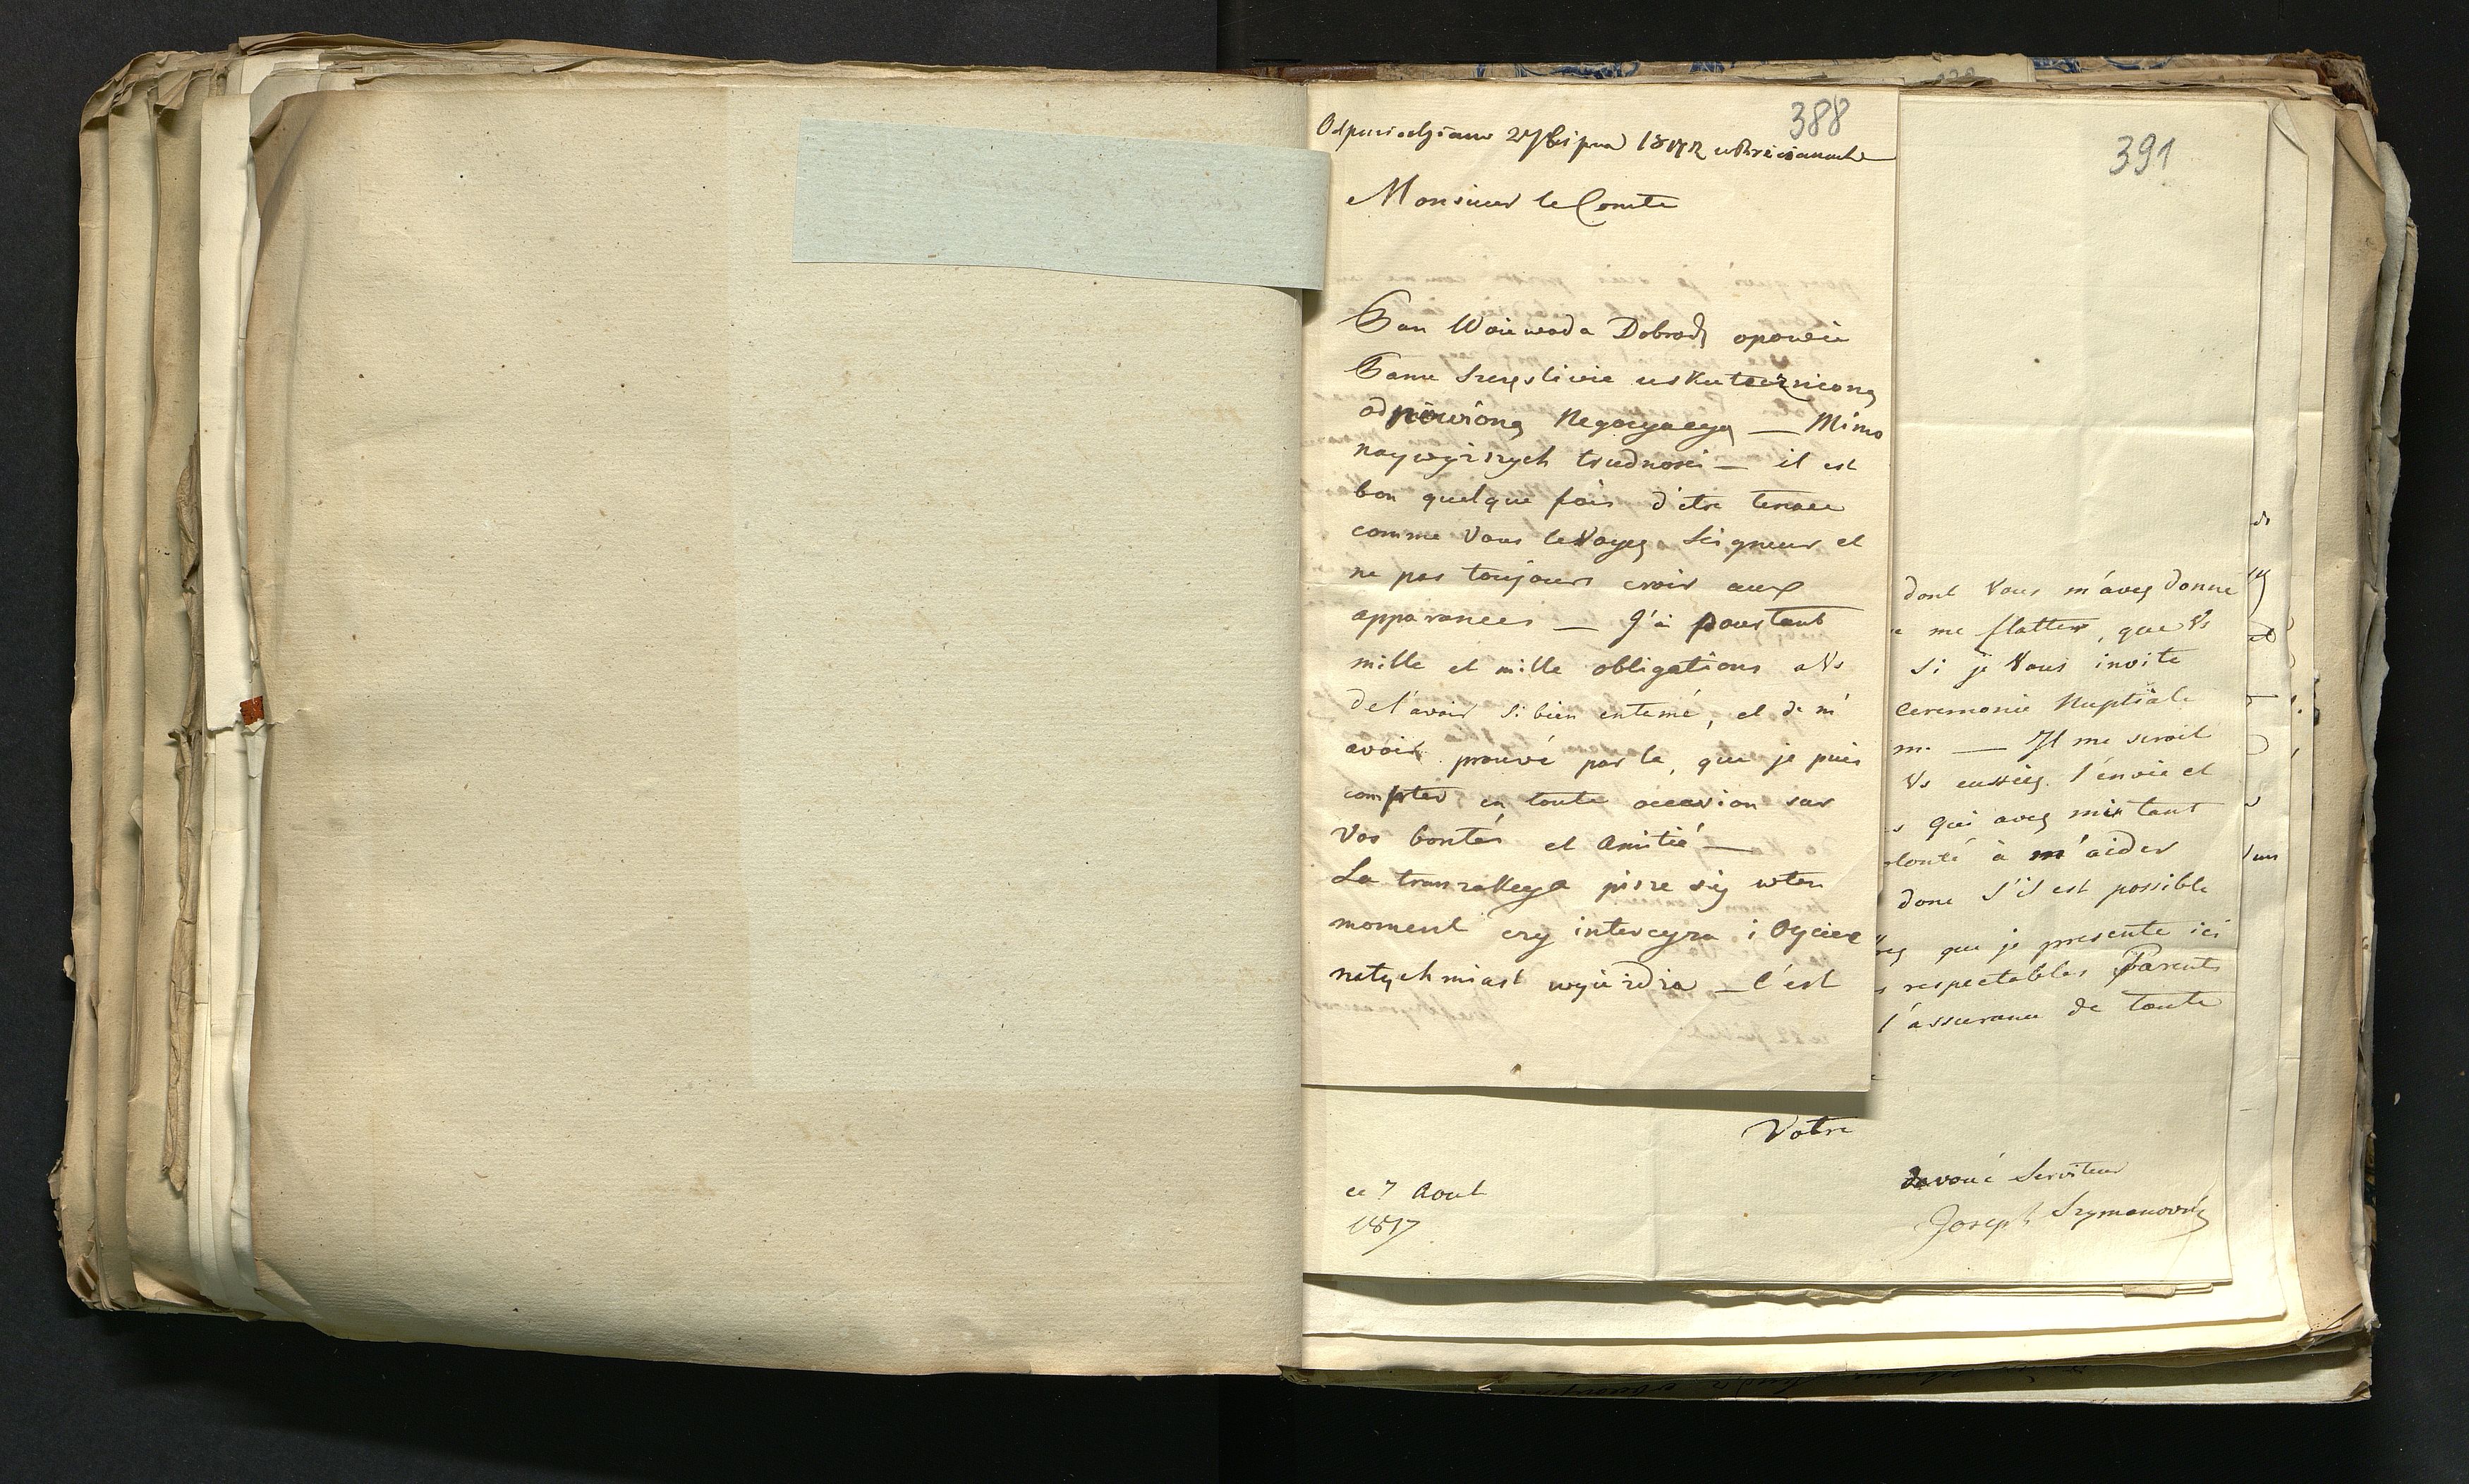 388
Odpowiedziano 27 Lipca 18
Monsieur le Comte
Pan Woiewoda Dobrodz opowie
Panu szczęsliwie uskutecznioną
odnowioną Negocyacyą — Mimo
naywyższych trudnosci — il est
bon quelque fois d'etre tenace
comme Vous le Voyez Seigneur et
ne pas toujours croir aux
apparances — J'ai pourtant
mille et mille obligations a Vs
de l'avoir si bien entamé, et de m'
avoir prouvé par la, que je puis
compter en toute occasion sur
Vos bontés et Amitié —
La tranzakcya pisze się w ten
moment czy intercyza i Oyciec
natychmiast wyieżdza — C'est
391
dont Vous m'avez donné
me flatter, que Vs
si je Vous invite
Ceremonie Nuptiale
— Il me seroit
Vs eussiez l'envie et
s qui avez mis tant
olonté à m'aider
donc s'il est possible
que je presente ici
s respectables Parents
l'assurance de toute
Votre
devoué Serviteur
Joseph Szymanowski
ce 7 Aout
1817